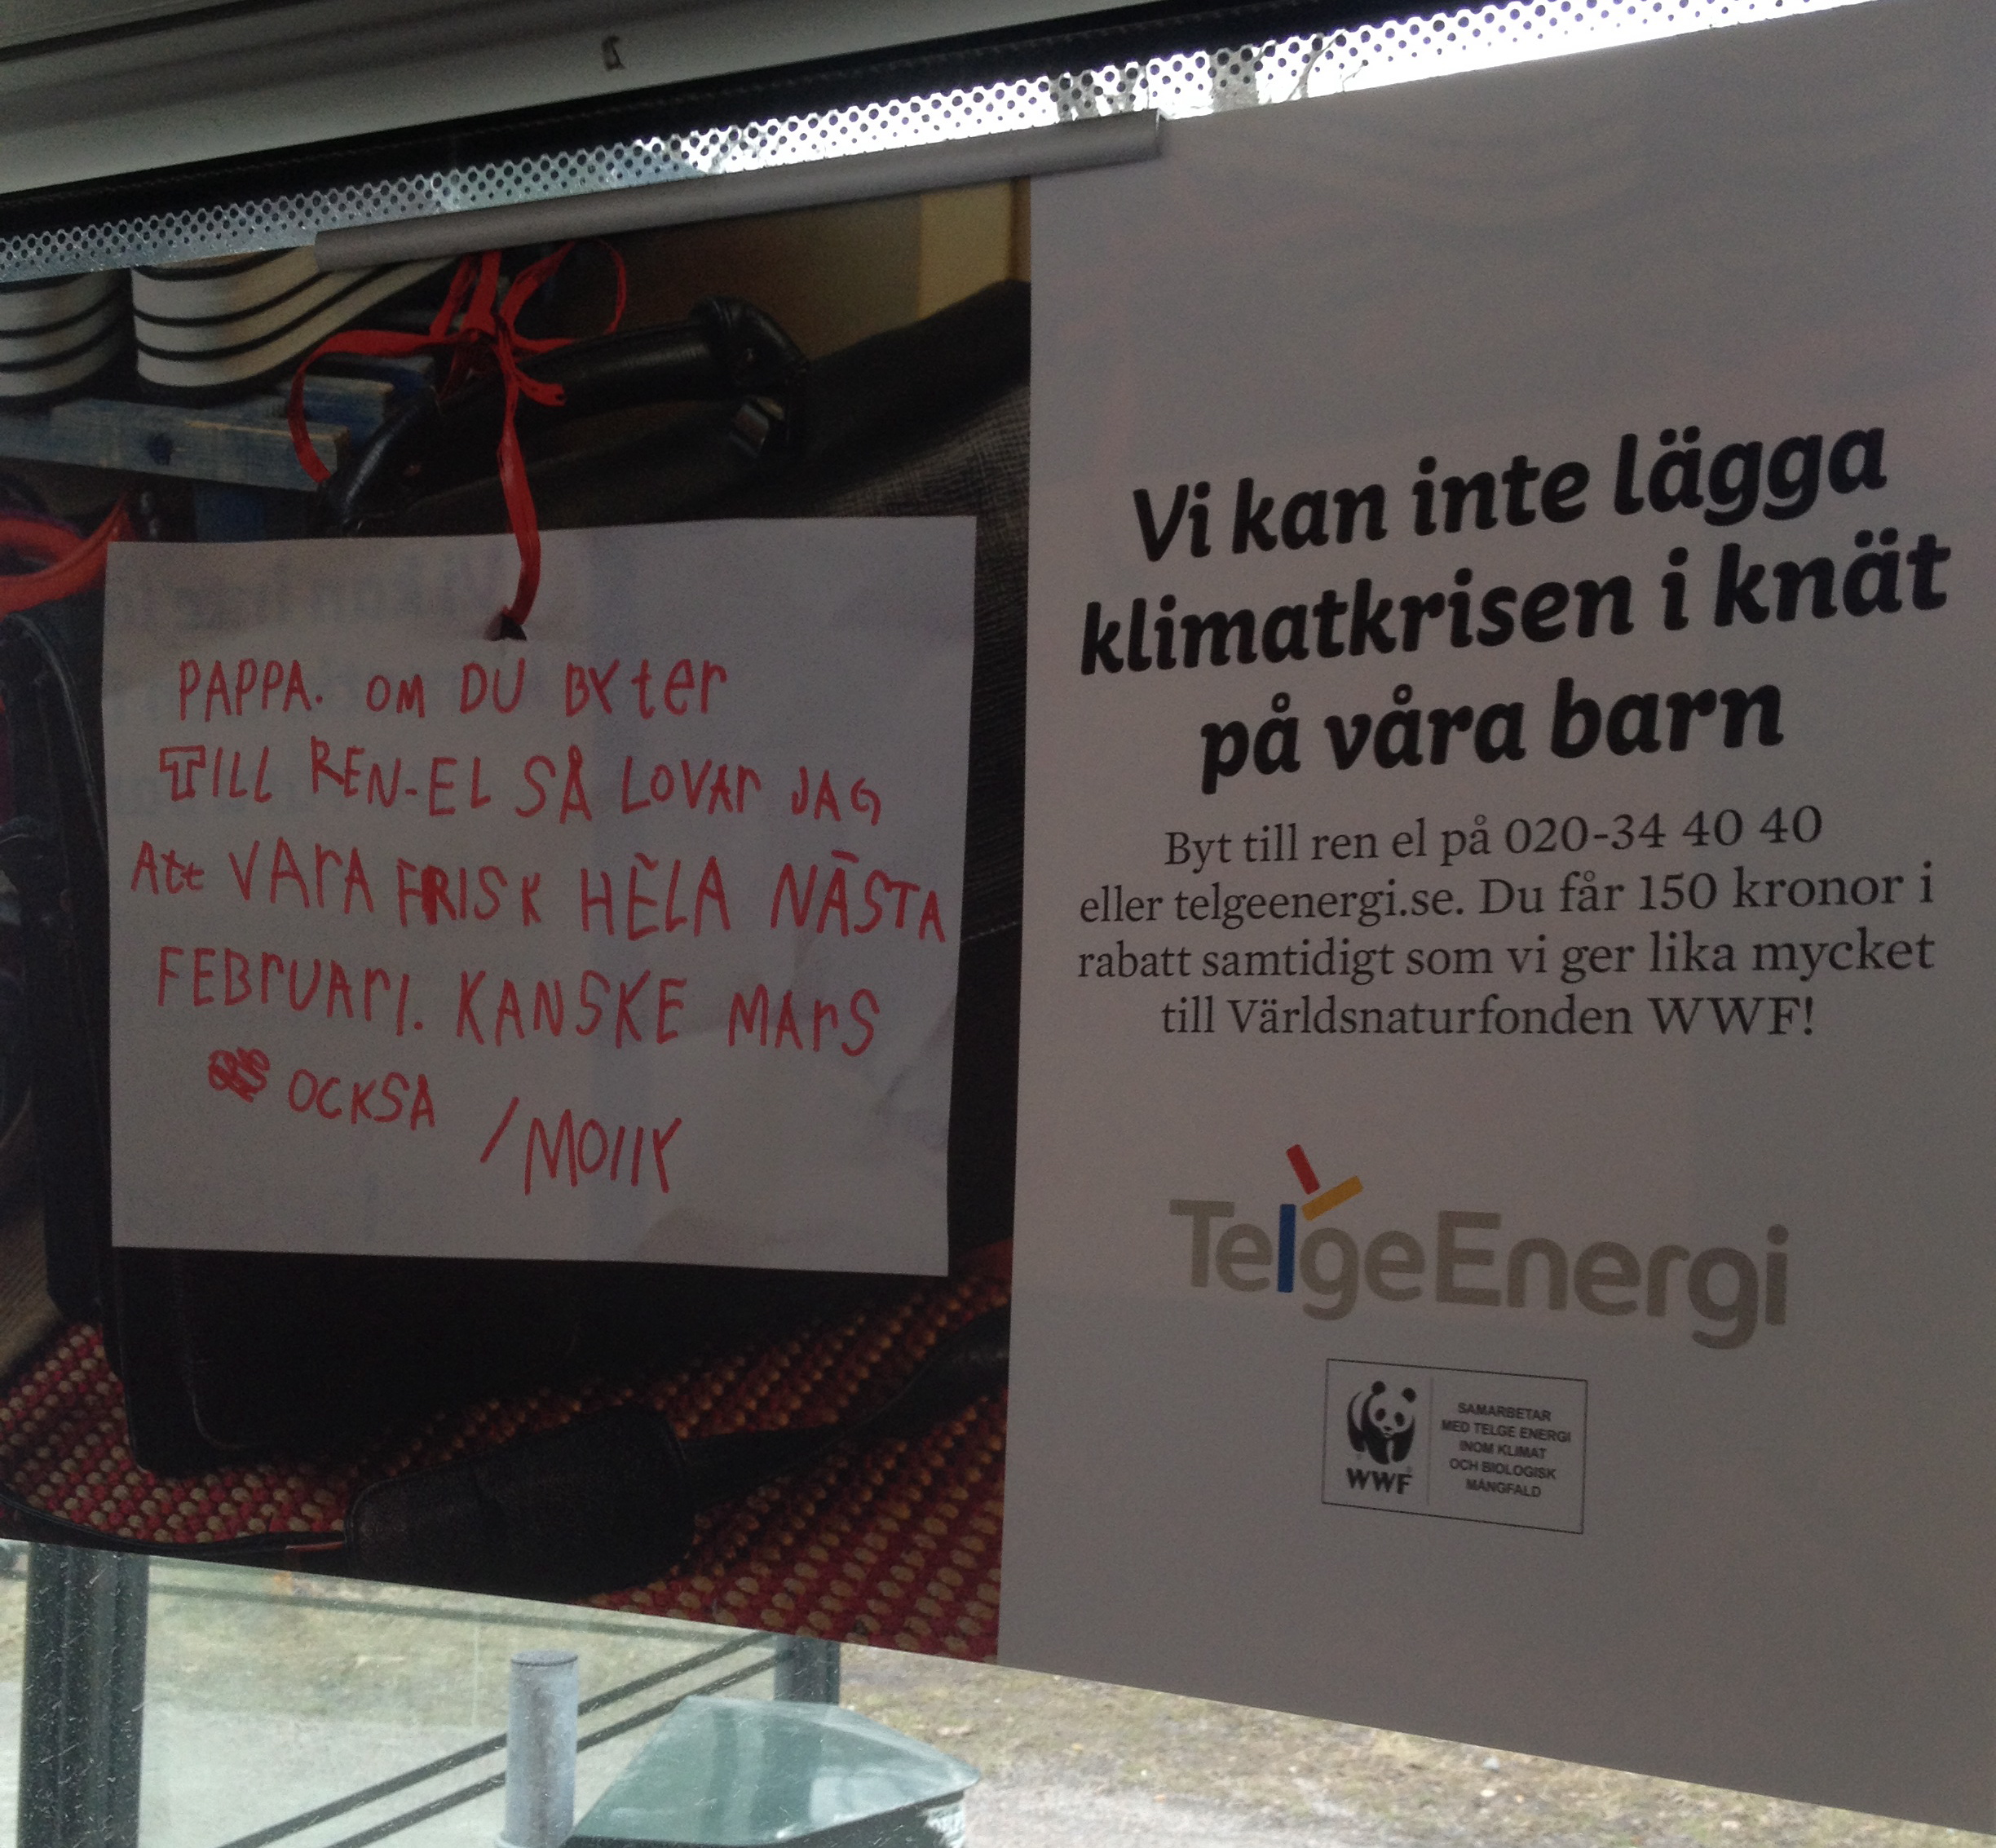 PAPPA. OM DU BYter
TILL REN-EL SÅ LOVAr JAG
Att VArA FRISK HELA NÄSTA
FEBrUArI. KANSKE MArS
OCKSÅ /MOllY
Vi kan inte lägga
klimatkrisen i knät
på våra barn
Byt till ren el på 020-34 40 40
eller telgeenergi.se. Du får 150 kronor i
rabatt samtidigt som vi ger lika mycket
till Världsnaturfonden WWF!
TelgeEnergi
WWF
SAMARBETAR
MED TELGE ENERGI
INOM KLIMAT
OCH BIOLOGISK
MÅNGFALD